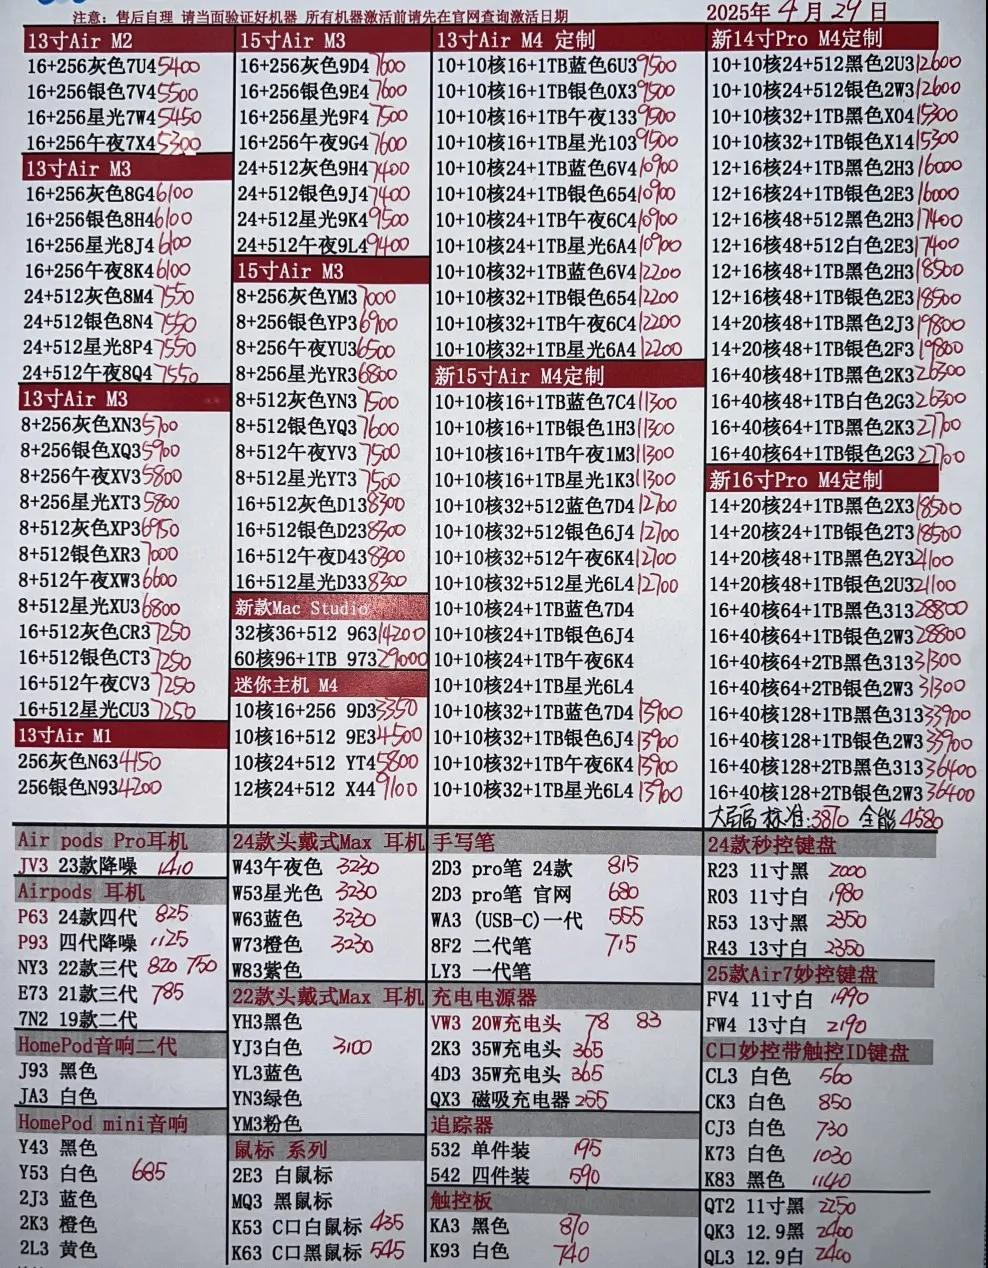 注意：售后自理 请当面验证好机器 所有机器激活前请先在官网查询激活日期
2025年 4 月 29 日
13寸Air M2
16+256灰色7U4 5400
16+256银色7V4 5500
16+256星光7W4 5450
16+256午夜7X4 5300
13寸Air M3
16+256灰色8G4 6100
16+256银色8H4 6100
16+256星光8J4 6100
16+256午夜8K4 6100
24+512灰色8M4 7550
24+512银色8N4 7550
24+512星光8P4 7550
24+512午夜8Q4 7550
13寸Air M3
8+256灰色XN3 5700
8+256银色XQ3 5900
8+256午夜XV3 5800
8+256星光XT3 5800
8+512灰色XP3 6950
8+512银色XR3 7000
8+512午夜XW3 6600
8+512星光XU3 6800
16+512灰色CR3 7250
16+512银色CT3 7250
16+512午夜CV3 7250
16+512星光CU3 7250
13寸Air M1
256灰色N63 4150
256银色N93 4200
15寸Air M3
16+256灰色9D4 7600
16+256银色9E4 7600
16+256星光9F4 7500
16+256午夜9G4 7600
24+512灰色9H4 7400
24+512银色9J4 7400
24+512星光9K4 9500
24+512午夜9L4 9400
15寸Air M3
8+256灰色YM3 7000
8+256银色YP3 6900
8+256午夜YU3 6500
8+256星光YR3 6800
8+512灰色YN3 7500
8+512银色YQ3 7600
8+512午夜YV3 7500
8+512星光YT3 7500
16+512灰色D13 8300
16+512银色D23 8300
16+512午夜D43 8300
16+512星光D33 8300
新款Mac Studio
32核36+512 963 14200
60核96+1TB 973 29000
迷你主机 M4
10核16+256 9D3 3350
10核16+512 9E3 4500
10核24+512 YT4 5800
12核24+512 X44 9100
13寸Air M4 定制
10+10核16+1TB蓝色6U3 9500
10+10核16+1TB银色0X3 9500
10+10核16+1TB午夜133 9500
10+10核16+1TB星光103 9500
10+10核24+1TB蓝色6V4 10900
10+10核24+1TB银色654 10900
10+10核24+1TB午夜6C4 10900
10+10核24+1TB星光6A4 10900
10+10核32+1TB蓝色6V4 12200
10+10核32+1TB银色654 12200
10+10核32+1TB午夜6C4 12200
10+10核32+1TB星光6A4 12200
新15寸Air M4定制
10+10核16+1TB蓝色7C4 11300
10+10核16+1TB银色1H3 11300
10+10核16+1TB午夜1M3 11300
10+10核16+1TB星光1K3 11300
10+10核32+512蓝色7D4 12700
10+10核32+512银色6J4 12700
10+10核32+512午夜6K4 12700
10+10核32+512星光6L4 12700
10+10核24+1TB蓝色7D4
10+10核24+1TB银色6J4
10+10核24+1TB午夜6K4
10+10核24+1TB星光6L4
10+10核32+1TB蓝色7D4 13900
10+10核32+1TB银色6J4 13900
10+10核32+1TB午夜6K4 13900
10+10核32+1TB星光6L4 13900
新14寸Pro M4定制
10+10核24+512黑色2U3 12600
10+10核24+512银色2W3 12600
10+10核32+1TB黑色X04 15300
10+10核32+1TB银色X14 15300
12+16核24+1TB黑色2H3 16000
12+16核24+1TB银色2E3 16000
12+16核48+512黑色2H3 17400
12+16核48+512白色2E3 17400
12+16核48+1TB黑色2H3 18500
12+16核48+1TB银色2E3 18500
14+20核48+1TB黑色2J3 19800
14+20核48+1TB银色2F3 19800
16+40核48+1TB黑色2K3 26300
16+40核48+1TB白色2G3 26300
16+40核64+1TB黑色2K3 27700
16+40核64+1TB银色2G3 27700
新16寸Pro M4定制
14+20核24+1TB黑色2X3 18500
14+20核24+1TB银色2T3 18500
14+20核48+1TB黑色2Y3 21100
14+20核48+1TB银色2U3 21100
16+40核64+1TB黑色313 28800
16+40核64+1TB银色2W3 28800
16+40核64+2TB黑色313 31300
16+40核64+2TB银色2W3 31300
16+40核128+1TB黑色313 33900
16+40核128+1TB银色2W3 33900
16+40核128+2TB黑色313 36400
16+40核128+2TB银色2W3 36400
标准:3870 全能 4580
Air pods Pro耳机
JV3 23款降噪 1410
Airpods 耳机
P63 24款四代 825
P93 四代降噪 1125
NY3 22款三代 820 750
E73 21款三代 785
7N2 19款二代
HomePod音响二代
J93 黑色
JA3 白色
HomePod mini音响
Y43 黑色
Y53 白色 685
2J3 蓝色
2K3 橙色
2L3 黄色
24款头戴式Max 耳机
W43午夜色 3230
W53星光色 3230
W63蓝色 3230
W73橙色 3230
W83紫色
22款头戴式Max 耳机
YH3黑色
YJ3白色 3100
YL3蓝色
YN3绿色
YM3粉色
鼠标 系列
2E3 白鼠标
MQ3 黑鼠标
K53 C口白鼠标 435
K63 C口黑鼠标 545
手写笔
2D3 pro笔 24款 815
2D3 pro笔 官网 680
WA3 (USB-C)一代 555
8F2 二代笔 715
LY3 一代笔
充电电源器
VW3 20W充电头 78 83
2K3 35W充电头 365
4D3 35W充电头 365
QX3 磁吸充电器 255
追踪器
532 单件装 195
542 四件装 590
触控板
KA3 黑色 870
K93 白色 740
24款秒控键盘
R23 11寸黑 2000
R03 11寸白 1980
R53 13寸黑 2350
R43 13寸白 2350
25款Air7妙控键盘
FV4 11寸白 1990
FW4 13寸白 2190
C口妙控带触控ID键盘
CL3 白色 560
CK3 白色 850
CJ3 白色 730
K73 白色 1030
K83 黑色 1140
QT2 11寸黑 2250
QK3 12.9黑 2400
QL3 12.9白 2400